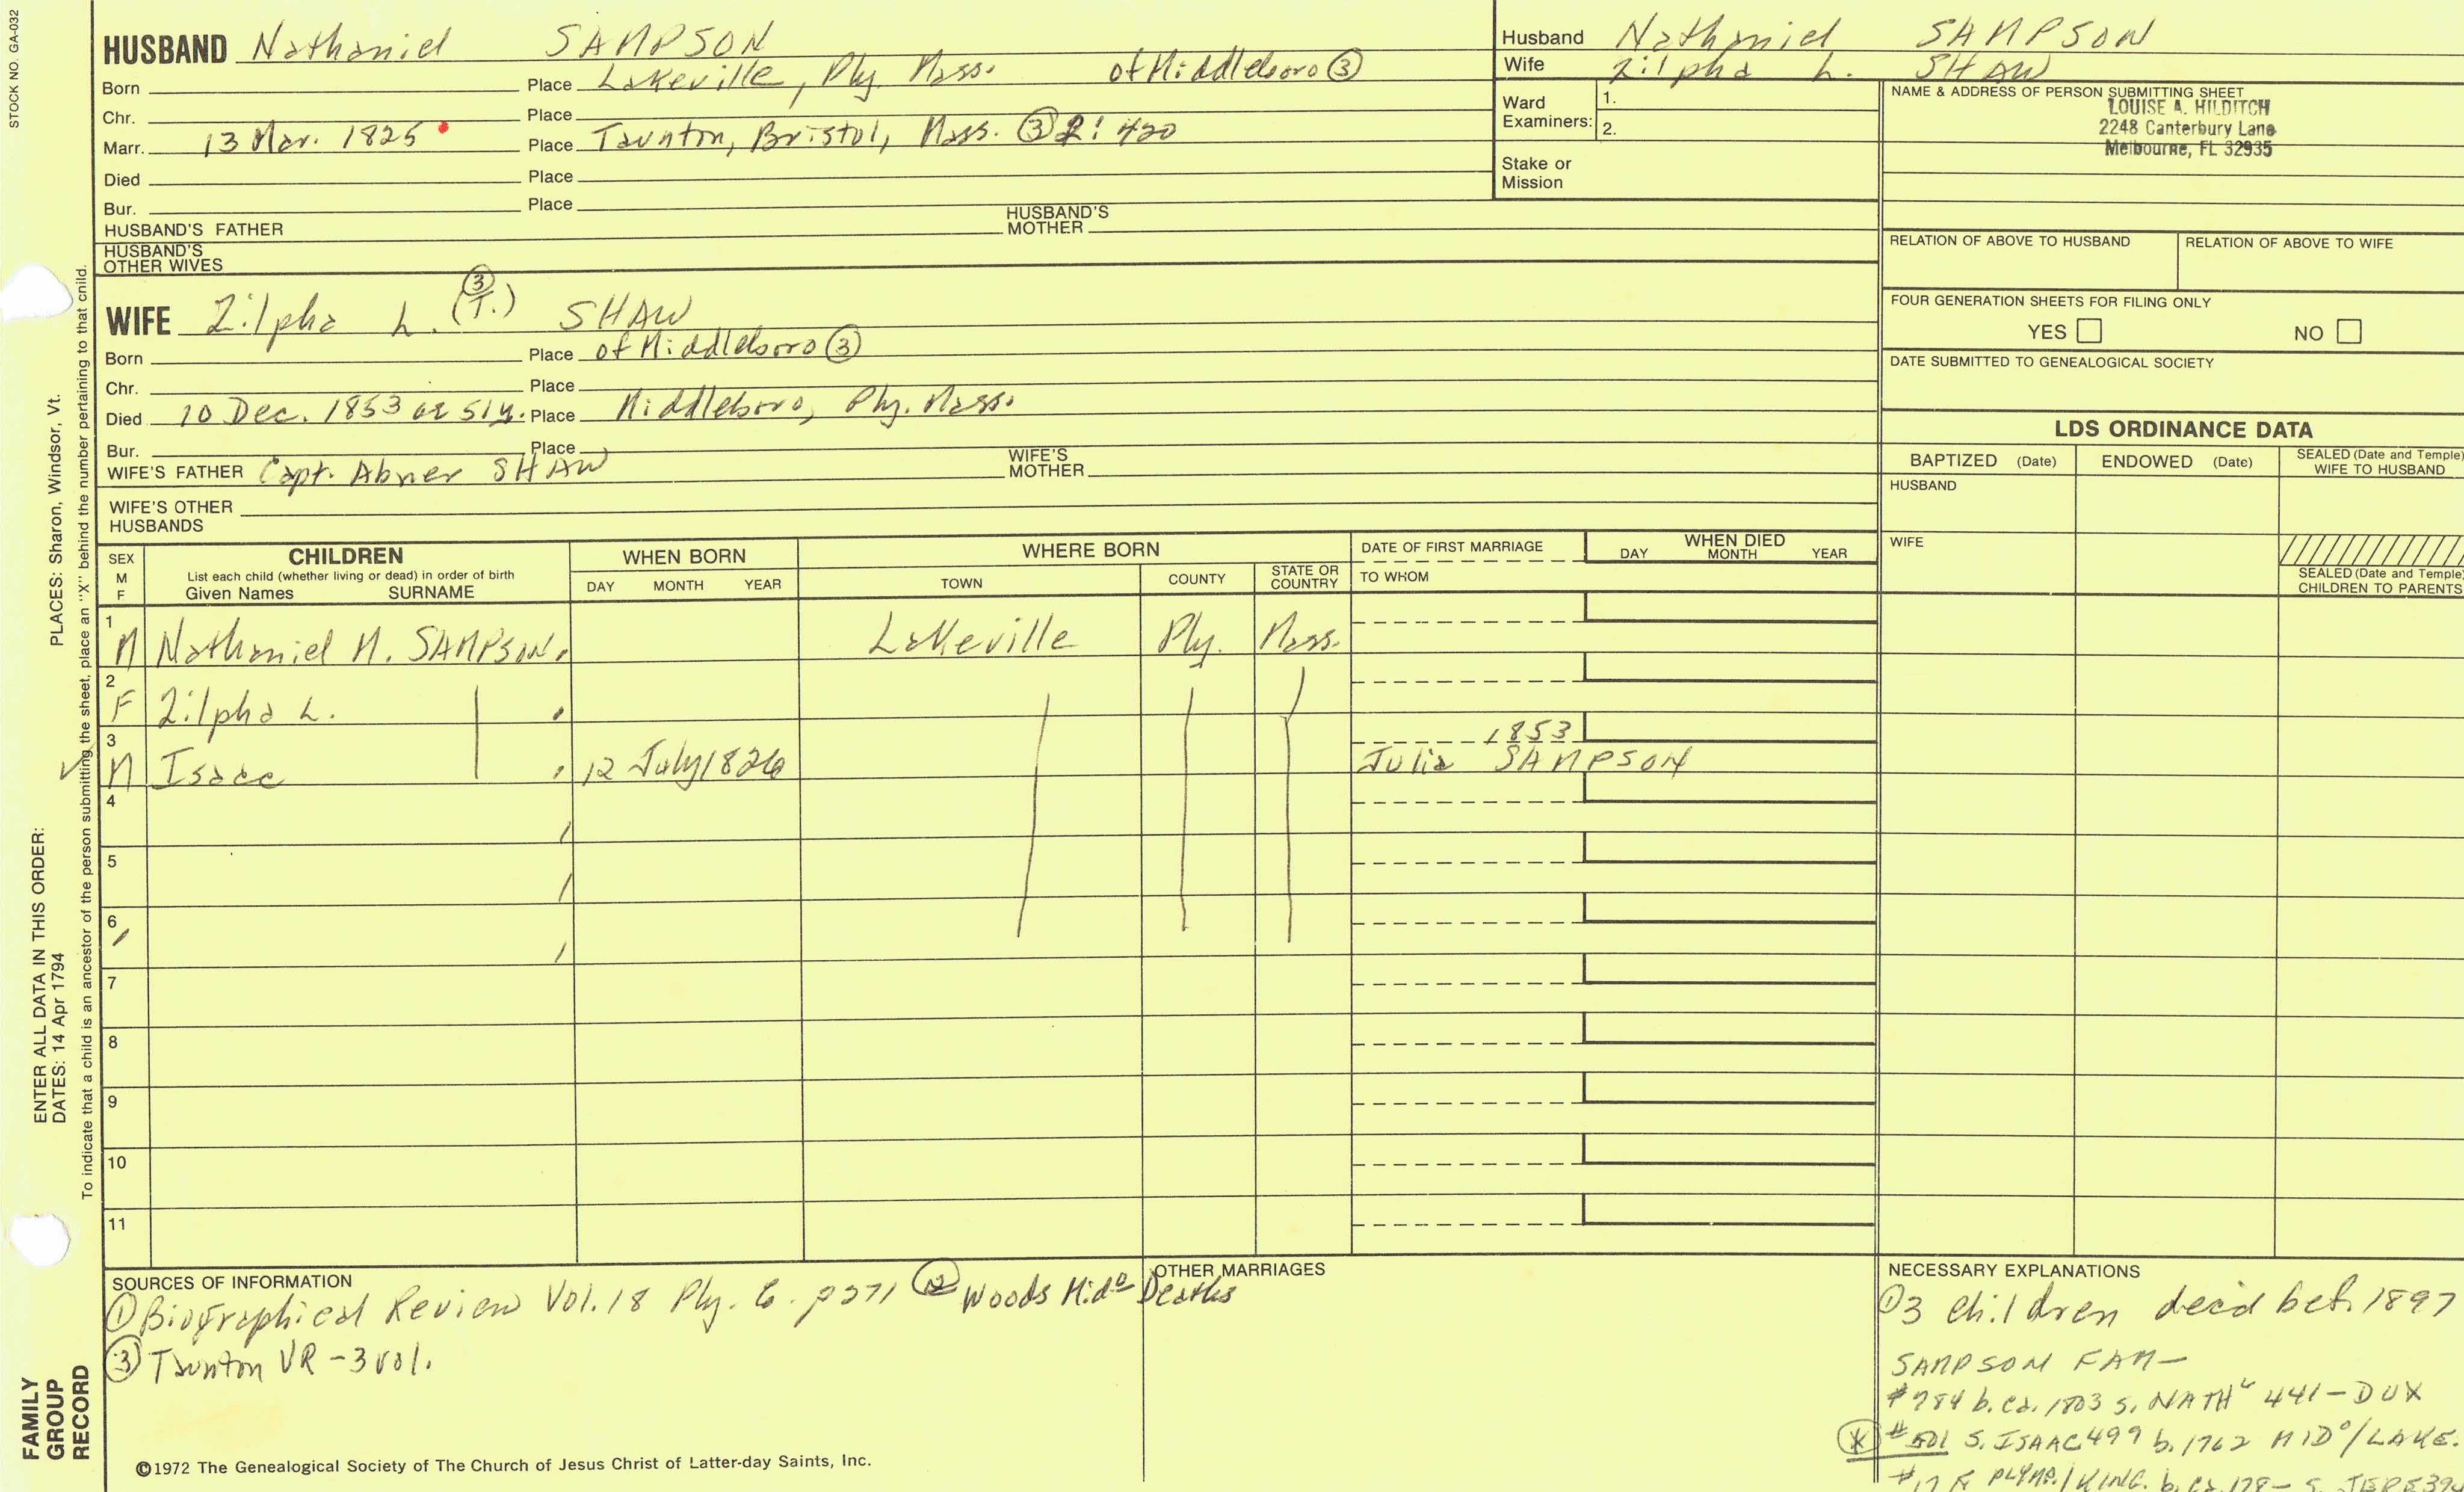 STOCK NO. GA-032
HUSBAND Nathaniel SAMPSON
Born Place Lakeville, Ply. Mass. of Middleboro ③
Chr. Place
Marr. 13 Mar. 1825 Place Taunton, Bristol, Mass. ③ 2: 420
Died Place
Bur. Place
HUSBAND'S FATHER HUSBAND'S MOTHER
HUSBAND'S OTHER WIVES
Husband Nathaniel SAMPSON
Wife Zilpha L. SHAW
Ward Examiners: 1.
2.
Stake or Mission
NAME & ADDRESS OF PERSON SUBMITTING SHEET
LOUISE A. HILDITCH
2248 Canterbury Lane
Melbourne, FL 32935
RELATION OF ABOVE TO HUSBAND RELATION OF ABOVE TO WIFE
FOUR GENERATION SHEETS FOR FILING ONLY
YES NO
DATE SUBMITTED TO GENEALOGICAL SOCIETY
WIFE Zilpha L. (③ T.) SHAW
Born Place of Middleboro ③
Chr. Place
Died 10 Dec. 1853 ae 51y. Place Middleboro, Ply. Mass.
Bur. Place
WIFE'S FATHER Capt. Abner SHAW WIFE'S MOTHER
WIFE'S OTHER HUSBANDS
LDS ORDINANCE DATA
BAPTIZED (Date) ENDOWED (Date) SEALED (Date and Temple) WIFE TO HUSBAND
HUSBAND
WIFE
SEALED (Date and Temple) CHILDREN TO PARENTS
SEX M F
CHILDREN
List each child (whether living or dead) in order of birth
Given Names SURNAME
WHEN BORN
DAY MONTH YEAR
WHERE BORN
TOWN COUNTY STATE OR COUNTRY
DATE OF FIRST MARRIAGE
TO WHOM
WHEN DIED
DAY MONTH YEAR
1 M Nathaniel M. SAMPSON Lakeville Ply. Mass.
2 F Zilpha L.
3 M Isaac 12 July 1826 1853 Julia SAMPSON
4
5
6
7
8
9
10
11
SOURCES OF INFORMATION
① Biographical Review Vol. 18 Ply. Co. p 371 ② Woods Mido Deaths
③ Taunton VR - 3 vol.
OTHER MARRIAGES
NECESSARY EXPLANATIONS
① 3 children decd bef. 1897
SAMPSON FAM—
#784 b. ca. 1803 s. NATHL 441 - DUX
* #501 S. ISAAC 499 b. 1762 MIDo/LAKE.
PLYMP./KING. b. ca. 178-
©1972 The Genealogical Society of The Church of Jesus Christ of Latter-day Saints, Inc.
FAMILY GROUP RECORD
ENTER ALL DATA IN THIS ORDER:
DATES: 14 Apr 1794
PLACES: Sharon, Windsor, Vt.
To indicate that a child is an ancestor of the person submitting the sheet, place an "X" behind the number pertaining to that child.